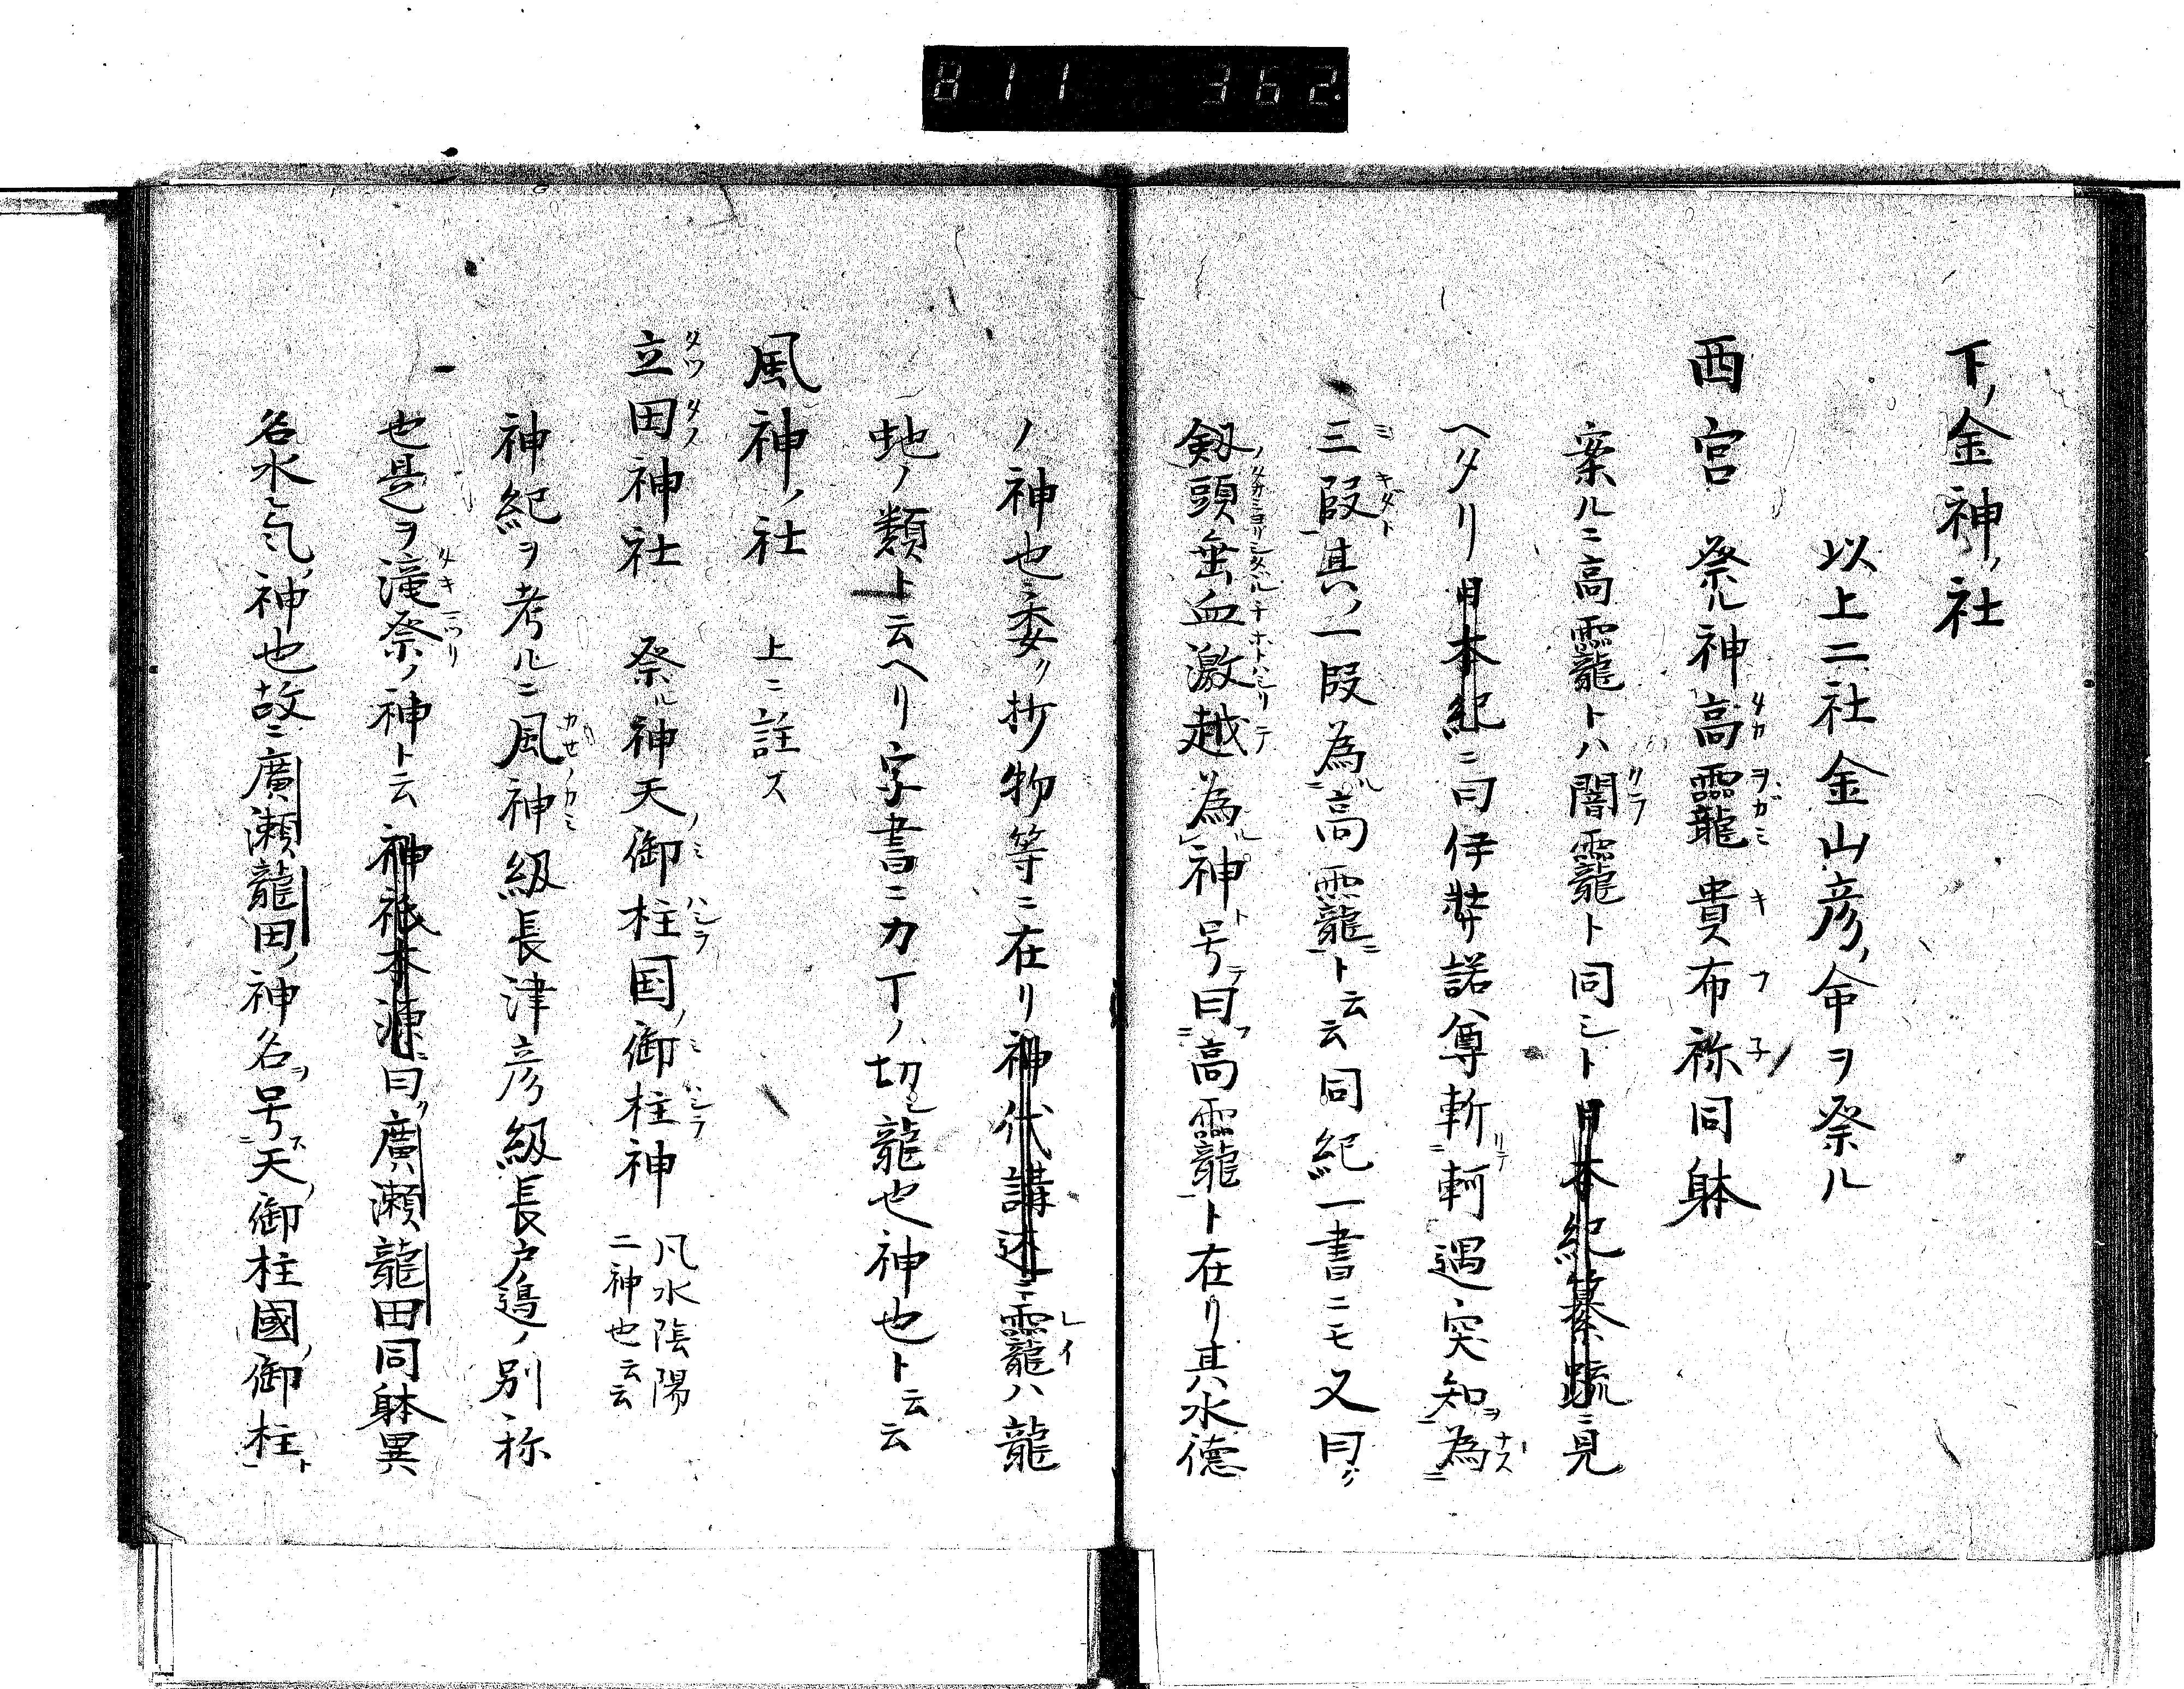 811 362
下ノ金神ノ社
以上二社金山彦ノ命ヲ祭ル
西宮 祭ル神高龗貴布祢同躰
案ルニ高龗トハ闇龗ト同シト日本紀纂疏ニ見
ヘタリ日本紀ニ曰伊弉諾尊斬軻遇突知ヲ為
三段其ノ一段為高龗ト云云同紀一書ニモ又曰ク
剱頭垂血激越為神号曰高龗ト在リ其水徳
ノ神也委ク抄物等ニ在リ神代講述ニ龗ハ龍
虵ノ類ト云ヘリ字書ニカ丁ノ切シ龍也神也ト云云
風神ノ社 上ニ註ス
立田神社 祭ル神天御柱国ノ御柱神 凡水陰陽二神也云云
神紀ヲ考ルニ風神級長津彦級長戸邉ノ別称
也是ヲ滝祭ノ神ト云神祇本源ニ曰ク廣瀬龍田同躰異
名水気ノ神也故ニ廣瀬龍田ノ神名ヲ号ス天ノ御柱國ノ御柱ト